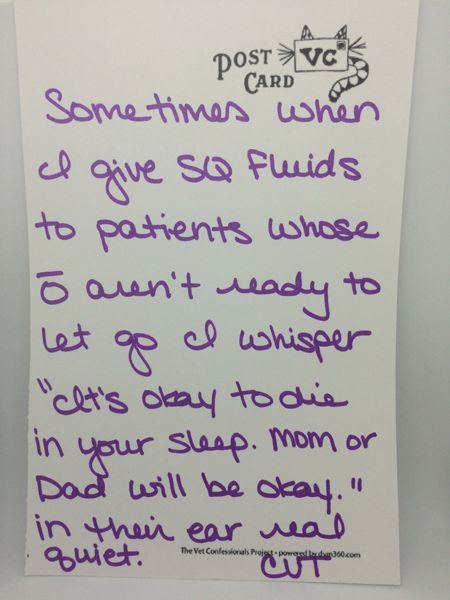 POST CARD VC
Sometimes when
I give SQ Fluids
to patients whose
ō aren't ready to
let go I whisper
"It's okay to die
in your sleep. Mom or
Dad will be okay."
in their ear real
quiet.
The Vet Confessionals Project - powered by dvm360.com
CVT